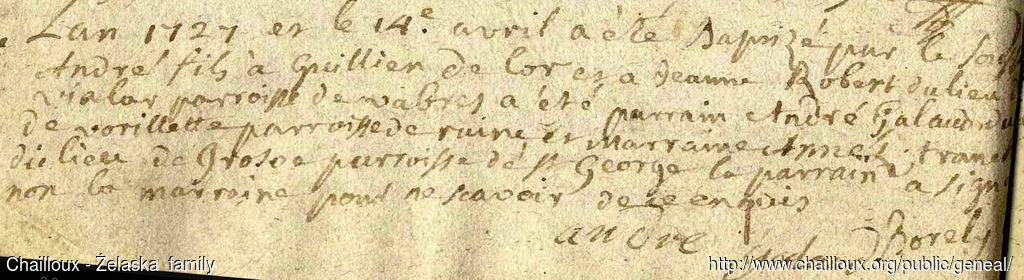 Lan 1727 et le 14e avril a été Baptizé par le
André fils à Guillien de lor et a Jeanne Robert du lieu
vialar parroisse de vabres a été parrain André Galaud
de vorillette parroisse de ruine et Marraine Anne
du lieu de Brosse parroisse de st George le parrain a sign
non la marraine pour ne scavoir de ce enquis
andre Borel
Chailloux - Želaska family
http://www.chailloux.org/public/geneal/